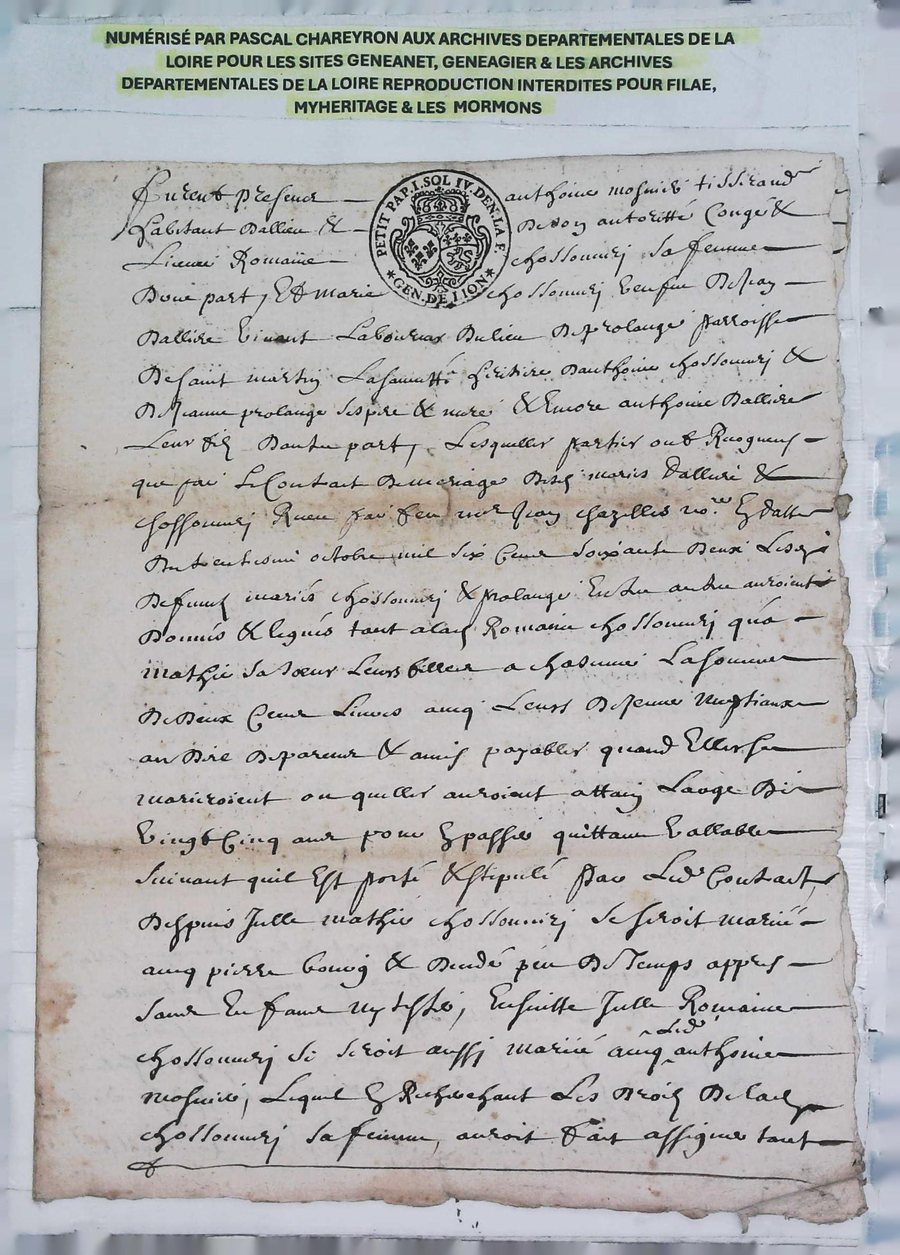 NUMÉRISÉ PAR PASCAL CHAREYRON AUX ARCHIVES DEPARTEMENTALES DE LA
LOIRE POUR LES SITES GENEANET, GENEAGIER & LES ARCHIVES
DEPARTEMENTALES DE LA LOIRE REPRODUCTION INTERDITES POUR FILAE,
MYHERITAGE & LES MORMONS
PETIT PAP. I. SOL IV. DEN. LA F.
GEN. DE LION
furent presens anthoine mosnier tisserand
habitant dallieu & de son autoritté Congé &
Licence Romaine chossonnerj sa femme
Dune part, Et marie chossonnerj veufue de Jean
Dalliere vivant Laboureur du lieu de prolange parroisse
De saint martin Lasauuetté heritiere danthoine chossonnerj &
De Jeanne prolange ses pere & mere & Encore anthoine Dalliere
Leur filz Dautre part, Lesquelles parties ont Recogneu
que par Le Contract De mariage Desd maries dalliere &
chossonnerj Receu par feu me Jean chazelles nore En datte
Du octobre mil six Cens soixante Deux Lesd
Defunctz mariés chossonnerj & prolange Entre autre auroient
Donnés & legués tant a lad Romaine chossonnerj qua
mathie sa sœur Leurs filles a chacune La somme
De Deux Cens Liures aueq Leurs nuptiaux
au Dire De parens & amis payables quand Elles se
marieroient ou quelles auroient attain Laage De
Vingt Cinq ans pour En passer quittance Vallable
Suiuant quil Est porté & stipulé par Led Contract,
Despuis Jcelle mathie chossonnerj se seroit mariée
aueq pierre bourg & peu De Temps appres
sans Enfans, Ensuitte Jcelle Romaine
chossonnerj se seroit aussj mariée aueq Led anthoine
mosnier, Lequel En Recherchant Les Droitz De lad
chossonnerj sa femme, auroit fait assigner tant